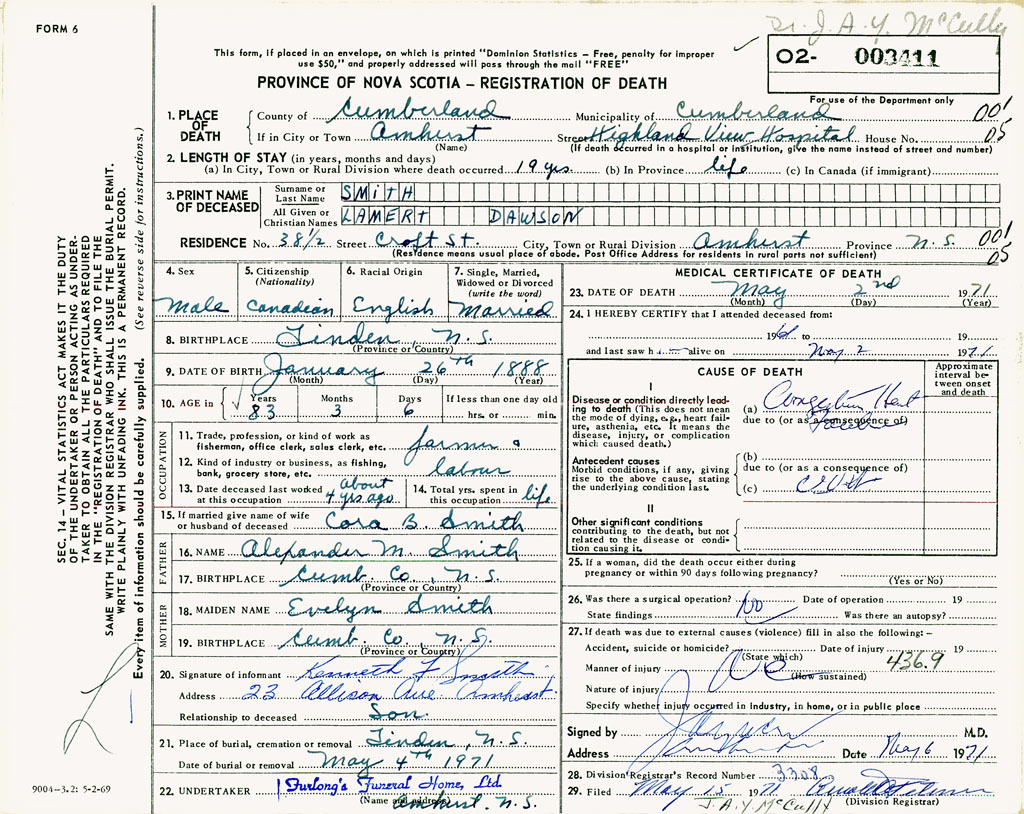 FORM 6
Dr. J. A. Y. McCully
This form, if placed in an envelope, on which is printed "Dominion Statistics – Free, penalty for improper
use $50," and properly addressed will pass through the mail "FREE"
O2- 003411
For use of the Department only
PROVINCE OF NOVA SCOTIA – REGISTRATION OF DEATH
1. PLACE OF DEATH
County of Cumberland Municipality of Cumberland 001
If in City or Town Amherst Street Highland View Hospital House No. 05
(Name) (If death occurred in a hospital or institution, give the name instead of street and number)
2. LENGTH OF STAY (in years, months and days)
(a) In City, Town or Rural Division where death occurred 19 yrs. (b) In Province life (c) In Canada (if immigrant)
3. PRINT NAME OF DECEASED
Surname or Last Name SMITH
All Given or Christian Names LAMERT DAWSON
RESIDENCE No. 38 1/2 Street Croft St. City, Town or Rural Division Amherst Province N.S. 001
(Residence means usual place of abode. Post Office Address for residents in rural parts not sufficient) 05
4. Sex
Male
5. Citizenship
(Nationality)
Canadian
6. Racial Origin
English
7. Single, Married,
Widowed or Divorced
(write the word)
Married
8. BIRTHPLACE Linden, N.S.
(Province or Country)
9. DATE OF BIRTH January 26th 1888
(Month) (Day) (Year)
10. AGE in Years Months Days If less than one day old
83 3 6 hrs. or min.
OCCUPATION
11. Trade, profession, or kind of work as
fisherman, office clerk, sales clerk, etc. farmer &
12. Kind of industry or business, as fishing,
bank, grocery store, etc. labour
13. Date deceased last worked
at this occupation about 4 yrs ago
14. Total yrs. spent in
this occupation life
15. If married give name of wife
or husband of deceased Cora B. Smith
FATHER
16. NAME Alexander M. Smith
17. BIRTHPLACE Cumb. Co., N.S.
(Province or Country)
MOTHER
18. MAIDEN NAME Evelyn Smith
19. BIRTHPLACE Cumb. Co, N.S.
(Province or Country)
20. Signature of informant Kenneth F Smith
Address 23 Allison Ave Amherst
Relationship to deceased Son
21. Place of burial, cremation or removal Linden, N.S.
Date of burial or removal May 4th 1971
22. UNDERTAKER Furlong's Funeral Home, Ltd.
(Name and address) Amherst, N.S.
MEDICAL CERTIFICATE OF DEATH
23. DATE OF DEATH May 2nd 1971
(Month) (Day) (Year)
24. I HEREBY CERTIFY that I attended deceased from:
19 to 19
and last saw h alive on May 2 1971
CAUSE OF DEATH
Approximate
interval be-
tween onset
and death
I
Disease or condition directly lead-
ing to death (This does not mean
the mode of dying, e.g., heart fail-
ure, asthenia, etc. It means the
disease, injury, or complication
which caused death.)
(a) Heart
due to (or as a consequence of)
Antecedent causes
Morbid conditions, if any, giving
rise to the above cause, stating
the underlying condition last.
(b)
due to (or as a consequence of)
(c)
II
Other significant conditions
contributing to the death, but not
related to the disease or condi-
tion causing it.
25. If a woman, did the death occur either during
pregnancy or within 90 days following pregnancy?
(Yes or No)
26. Was there a surgical operation? No Date of operation 19
State findings Was there an autopsy?
27. If death was due to external causes (violence) fill in also the following: –
Accident, suicide or homicide? Date of injury 19
(State which) 436.9
Manner of injury
(How sustained)
Nature of injury
Specify whether injury occurred in industry, in home, or in public place
Signed by M.D.
Address Date May 6 1971
28. Division Registrar's Record Number 3308
29. Filed May 15 1971
J.A.Y. McCully (Division Registrar)
SEC. 14 – VITAL STATISTICS ACT MAKES IT THE DUTY
OF THE UNDERTAKER OR PERSON ACTING AS UNDER-
TAKER TO OBTAIN ALL THE PARTICULARS REQUIRED
IN THE "REGISTRATION OF DEATH" AND TO FILE THE
SAME WITH THE DIVISION REGISTRAR WHO SHALL ISSUE THE BURIAL PERMIT.
WRITE PLAINLY WITH UNFADING INK. THIS IS A PERMANENT RECORD.
Every item of information should be carefully supplied. (See reverse side for instructions.)
9004–3.2: 5-2-69